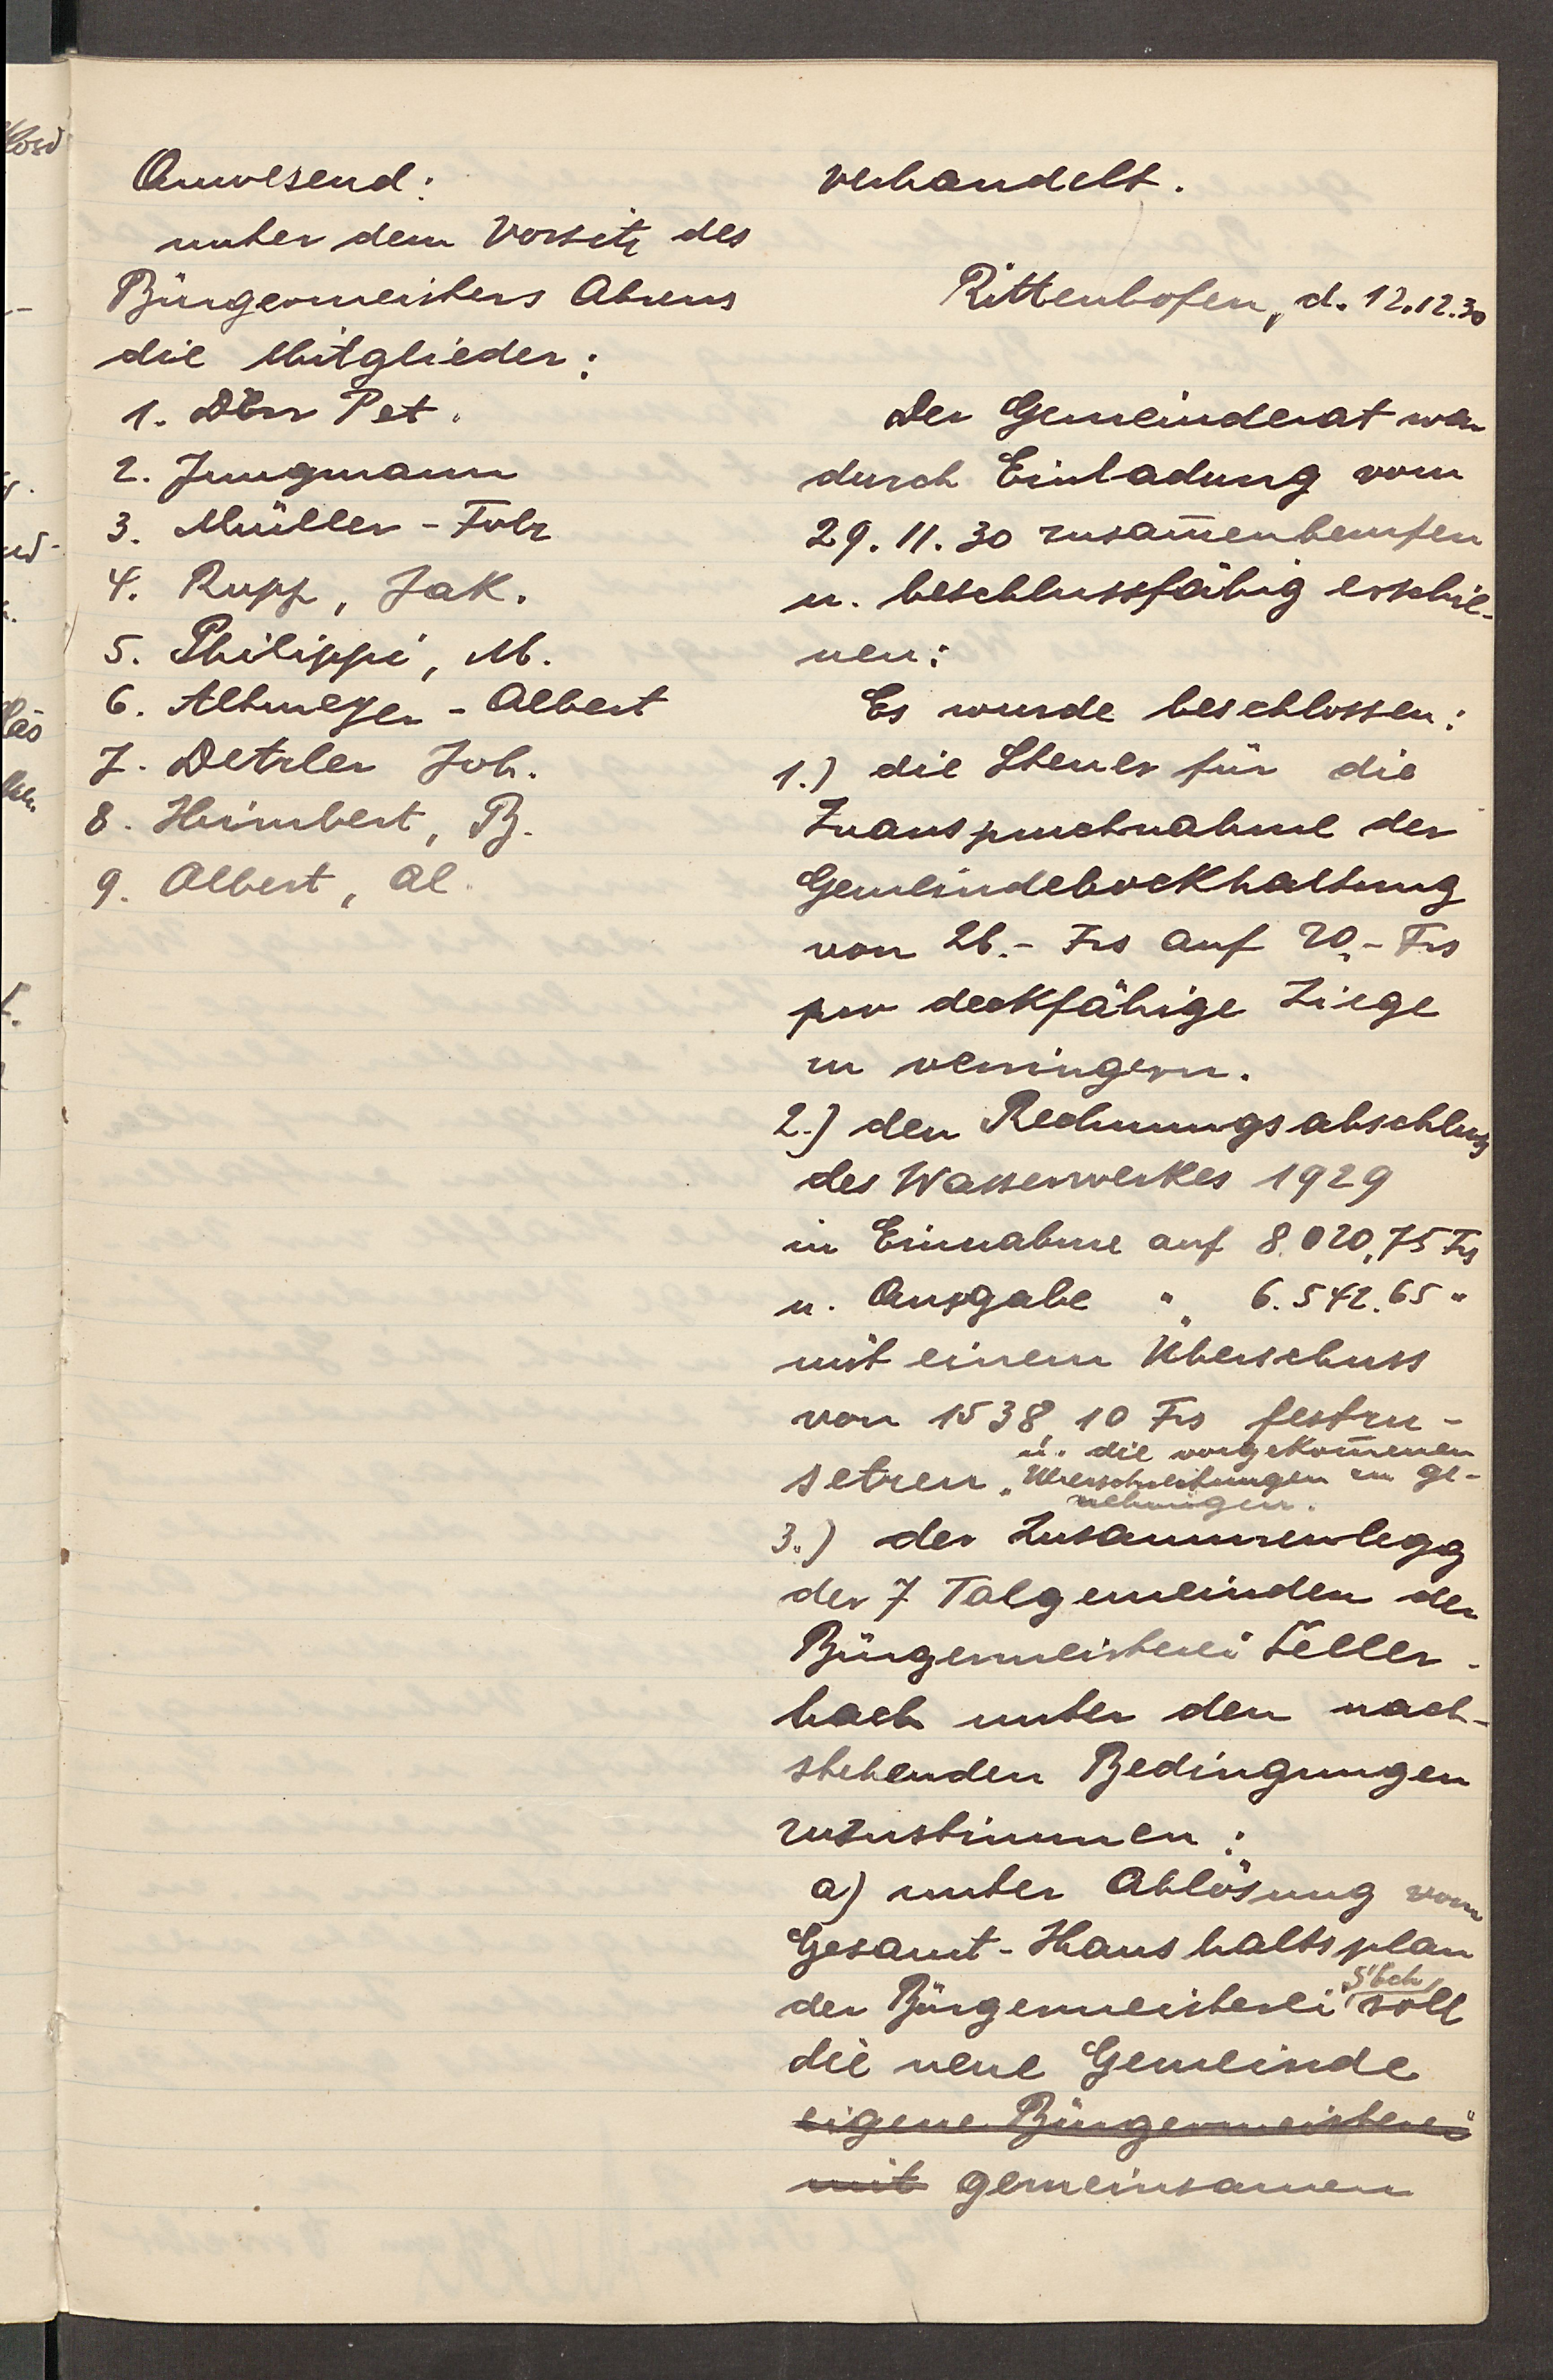 Anwesend:
unter dem Vorsitz des
Bürgermeisters Ahrens
die Mitglieder:
1. Dörr Pet.
2. Jungmann
3. Müller - Folz
4. Rupp, Jak.
5. Philippi, M.
6. Altmeyer - Albert
7. Detzler Joh.
8. Heimbert, B.
9. Albert, Al.
verhandelt.
Rittenhofen, d. 12.12.30
Der Gemeinderat war
durch Einladung vom
29. 11. 30 zusam̅enberufen
u. beschlussfähig erschie-
nen:
Es wurde beschlossen:
1.) die Steuer für die
Inanspruchnahme der
Gemeindebockhaltung
von 26.- Frs auf 20.- Frs
pro deckfähige Ziege
zu verringern.
2.) den Rechnungsabschluss
des Wasserwerkes 1929
in Einnahme auf 8.020,75 Frs
u. Ausgabe " 6.542.65 "
mit einem Überschuss
von 1538,10 Frs festzu-
u. die vorgekom̅enen
setzen. Überschreitungen zu ge-
nehmigen.
3.) der Zusammenlegg
der 7 Talgemeinden der
Bürgermeisterei Seller-
bach unter den nach-
stehenden Bedingungen
zuzustimmen:
a) unter Ablösung vom
Gesamt-Haushaltsplan
S'bch
der Bürgermeisterei soll
die neue Gemeinde
eigene Bürgermeisterei
mit gemeinsamen